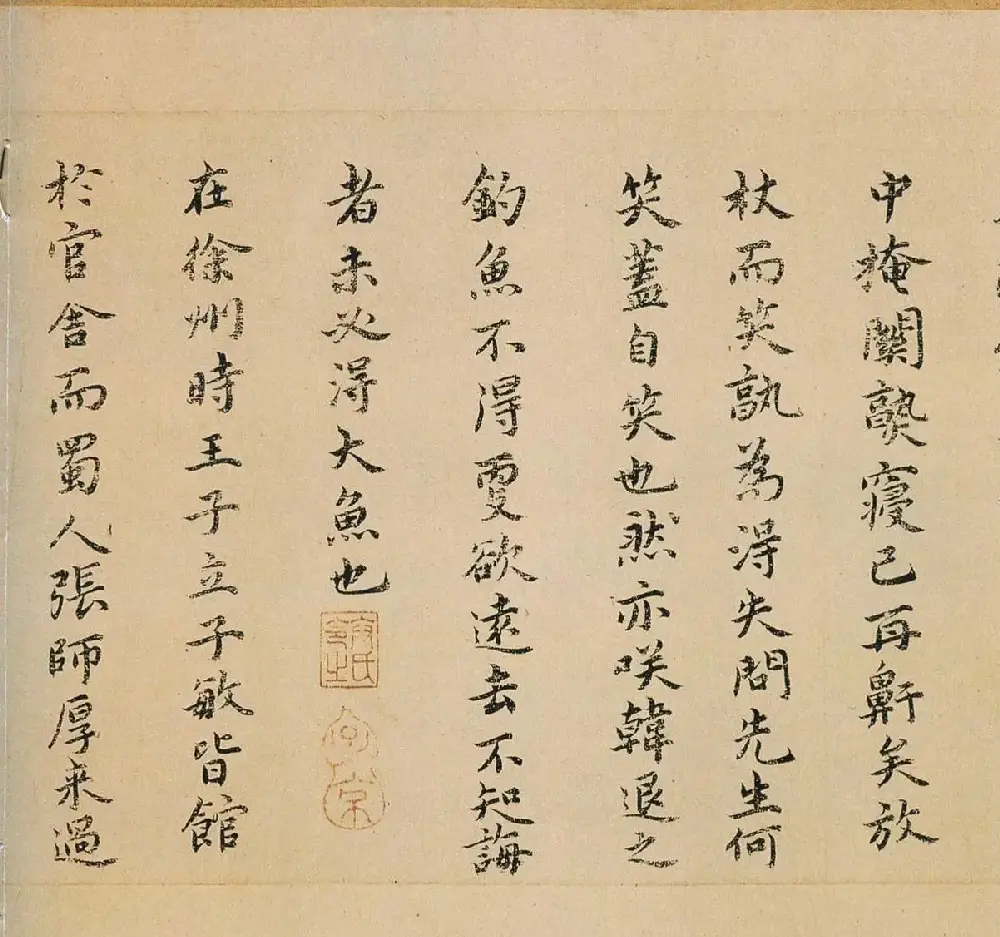 中掩關熟寢已再鼾矣放
杖而笑孰為得失問先生何
笑蓋自笑也然亦咲韓退之
釣魚不得更欲遠去不知誨
者未必得大魚也
在徐州時王子立子敏皆館
於官舍而蜀人張師厚来過